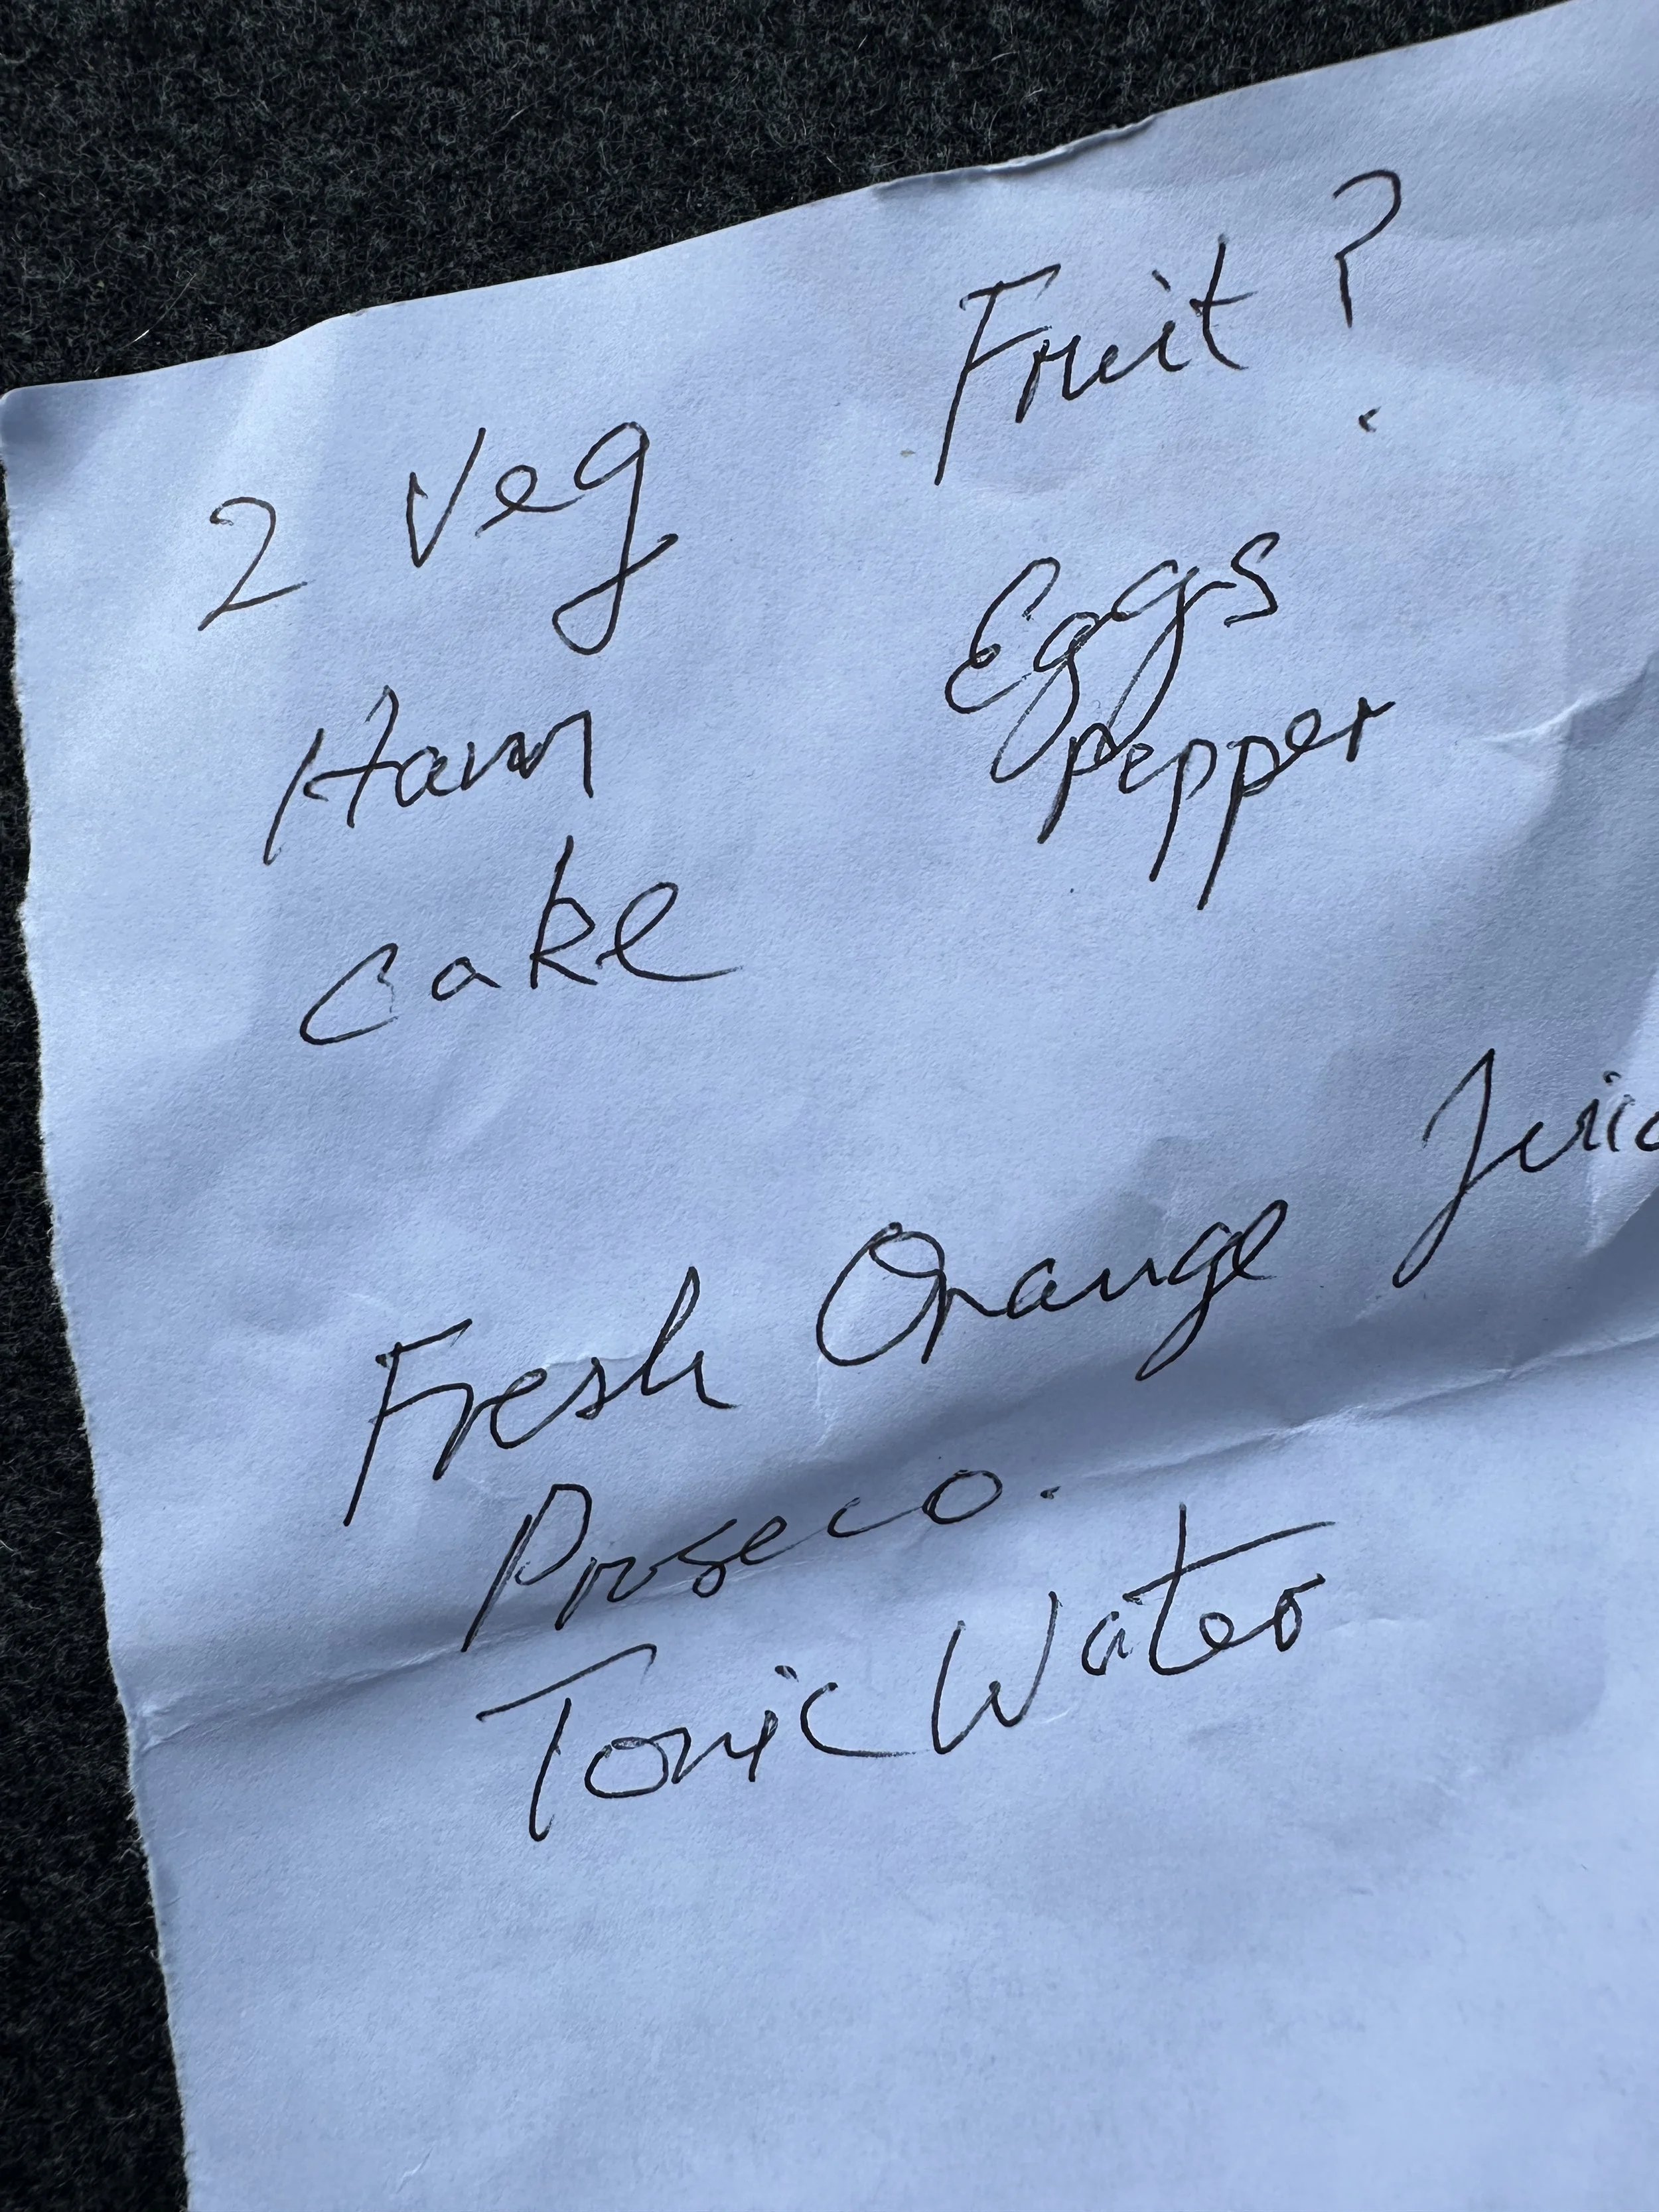 2 Veg Fruit ?
Ham Eggs
Cake pepper
Fresh Orange Juic
Proseco.
Tonic Water